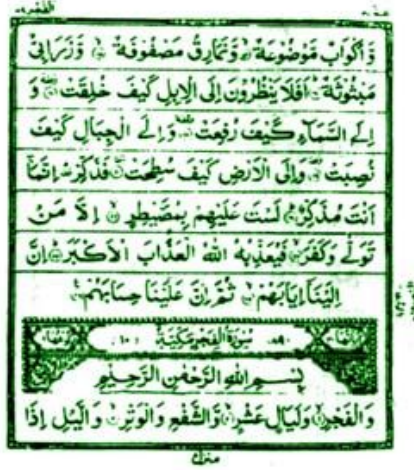 الفجر ٨٩
عم ٣٠
وَّاَكْوَابٌ مَّوْضُوْعَةٌ ۙ وَّنَمَارِقُ مَصْفُوْفَةٌ ۙ وَّزَرَابِيُّ
مَبْثُوْثَةٌ ؕ اَفَلَا يَنْظُرُوْنَ اِلَى الْاِبِلِ كَيْفَ خُلِقَتْ ۥ وَ
اِلَى السَّمَآءِ كَيْفَ رُفِعَتْ ۥ وَاِلَى الْجِبَالِ كَيْفَ
نُصِبَتْ ۥ وَاِلَى الْاَرْضِ كَيْفَ سُطِحَتْ ۥ فَذَكِّرْ ؕ اِنَّمَاۤ
اَنْتَ مُذَكِّرٌ ؕ لَسْتَ عَلَيْهِمْ بِمُصَۜيْطِرٍ ۙ اِلَّا مَنْ
تَوَلّٰى وَكَفَرَ ۙ فَيُعَذِّبُهُ اللّٰهُ الْعَذَابَ الْاَكْبَرَ ؕ اِنَّ
اِلَيْنَاۤ اِيَابَهُمْ ۙ ثُمَّ اِنَّ عَلَيْنَا حِسَابَهُمْ
٨٩ سُوْرَةُ الْفَجْرِ مَكِّيَّةٌ ١٠
بِسْمِ اللّٰهِ الرَّحْمٰنِ الرَّحِيْمِ
وَالْفَجْرِ ۙ وَلَيَالٍ عَشْرٍ ۙ وَّالشَّفْعِ وَالْوَتْرِ ۙ وَالَّيْلِ اِذَا
منزل